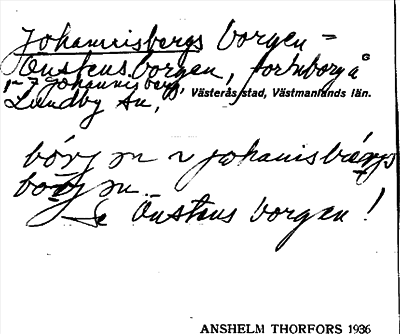 Johannisbergs borgen =
Önstens borgen, fornborg å
1-7 Johannisberg, Västerås stad, Västmanlands län.
Lundby sn,
börjm ~ johanisbærjs
börjm.
Se Önstens borgen!
ANSHELM THORFORS 1936